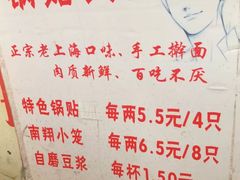 锅贴
正宗老上海口味、手工擀面
肉质新鲜、百吃不厌
特色锅贴 每两5.5元/4只
南翔小笼 每两6.5元/8只
自磨豆浆 每杯1.50元